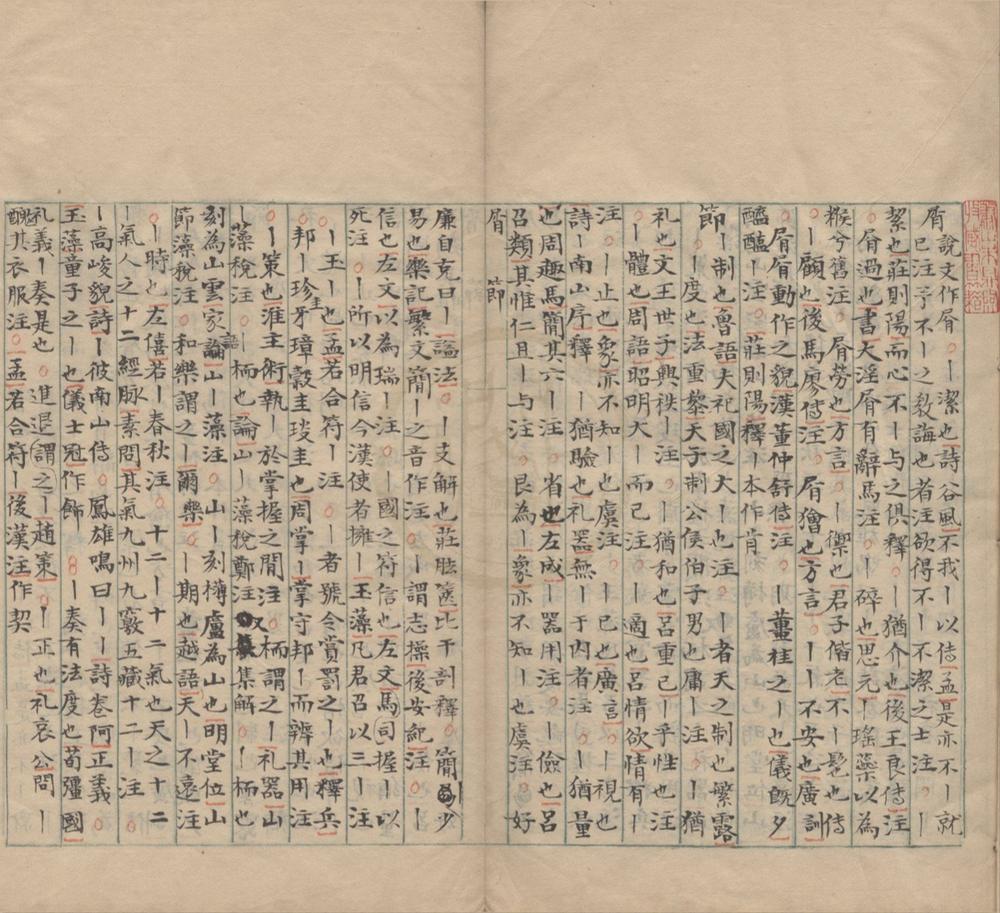 屑說文作屑○丨潔也詩谷風不我丨以傳孟是亦不丨就
已注予不丨之教誨也者注欲得不丨不潔之士注○丨
絜也莊則陽而心不丨与之俱釋○丨猶介也後王良傳注
○屑過也書大淫屑有辭馬注○丨碎也思元丨瑤蘂以為
糇兮舊注○屑勞也方言○丨儩也君子偕老不丨髢也傳
○丨顧也後馬廖傳注○屑獪也方言○丨丨不安也廣訓
○屑屑動作之貌漢董仲舒傳注○丨薑桂之丨也儀既夕
醢醢丨注○莊則陽釋丨本作肯
節○丨制也魯語夫祀國之大丨也注○丨者天之制也繁露
○丨度也法重黎天子制公侯伯子男也庸丨注○丨猶
礼也文王世子興秩丨注○丨猶和也呂重已丨乎性也注
○丨體也周語昭明大丨而已注○丨適也呂情欲情有丨
注○丨止也象亦不知丨也虞注○丨已也廣言○丨視也
詩丨南山序釋○丨猶驗也礼器無丨于內者注○丨猶量
也周趣馬簡其六丨注○省也左成丨器用注○丨儉也呂
召類其惟仁且丨与注○艮為丨象亦不知丨也虞注○好
屑　節
廉自克曰丨諡法○丨支解也莊胠篋比干剖釋○簡丨少
易也樂記繁文簡丨之音作注○丨謂志操後安紀注○丨
信也左文以為瑞丨注○丨國之符信也左文馬司握丨以
死注○丨所以明信今漢使者擁丨玉藻凡君召以三丨注
○丨玉丨也孟若合符丨注○丨者號令賞罰之丨也釋兵
○邦丨珍圭牙璋穀圭琰圭也周掌丨掌守邦丨而辨其用注
○丨策也淮主術執丨於掌握之間注○栭謂之丨礼器山
丨藻梲注○丨栭也論山丨藻梲鄭注集解○丨栭也
刻為山雲家語論山丨藻注○山丨刻欂盧為山也明堂位山
節藻梲注○和樂謂之丨爾樂○丨期也越語天丨不遠注
○丨時也左僖若丨春秋注○十二丨十二氣也天之十二
丨氣人之十二經脉素問其氣九州九竅五藏十二丨注
丨高峻貌詩丨彼南山傳○鳳雄鳴曰丨丨詩卷阿正義○
玉藻童子之丨也儀士冠作飾○丨奏有法度也荀彊國
礼義丨奏是也○進退謂之丨趙策○丨正也礼哀公問丨
醜其衣服注○孟若合符丨後漢注作契